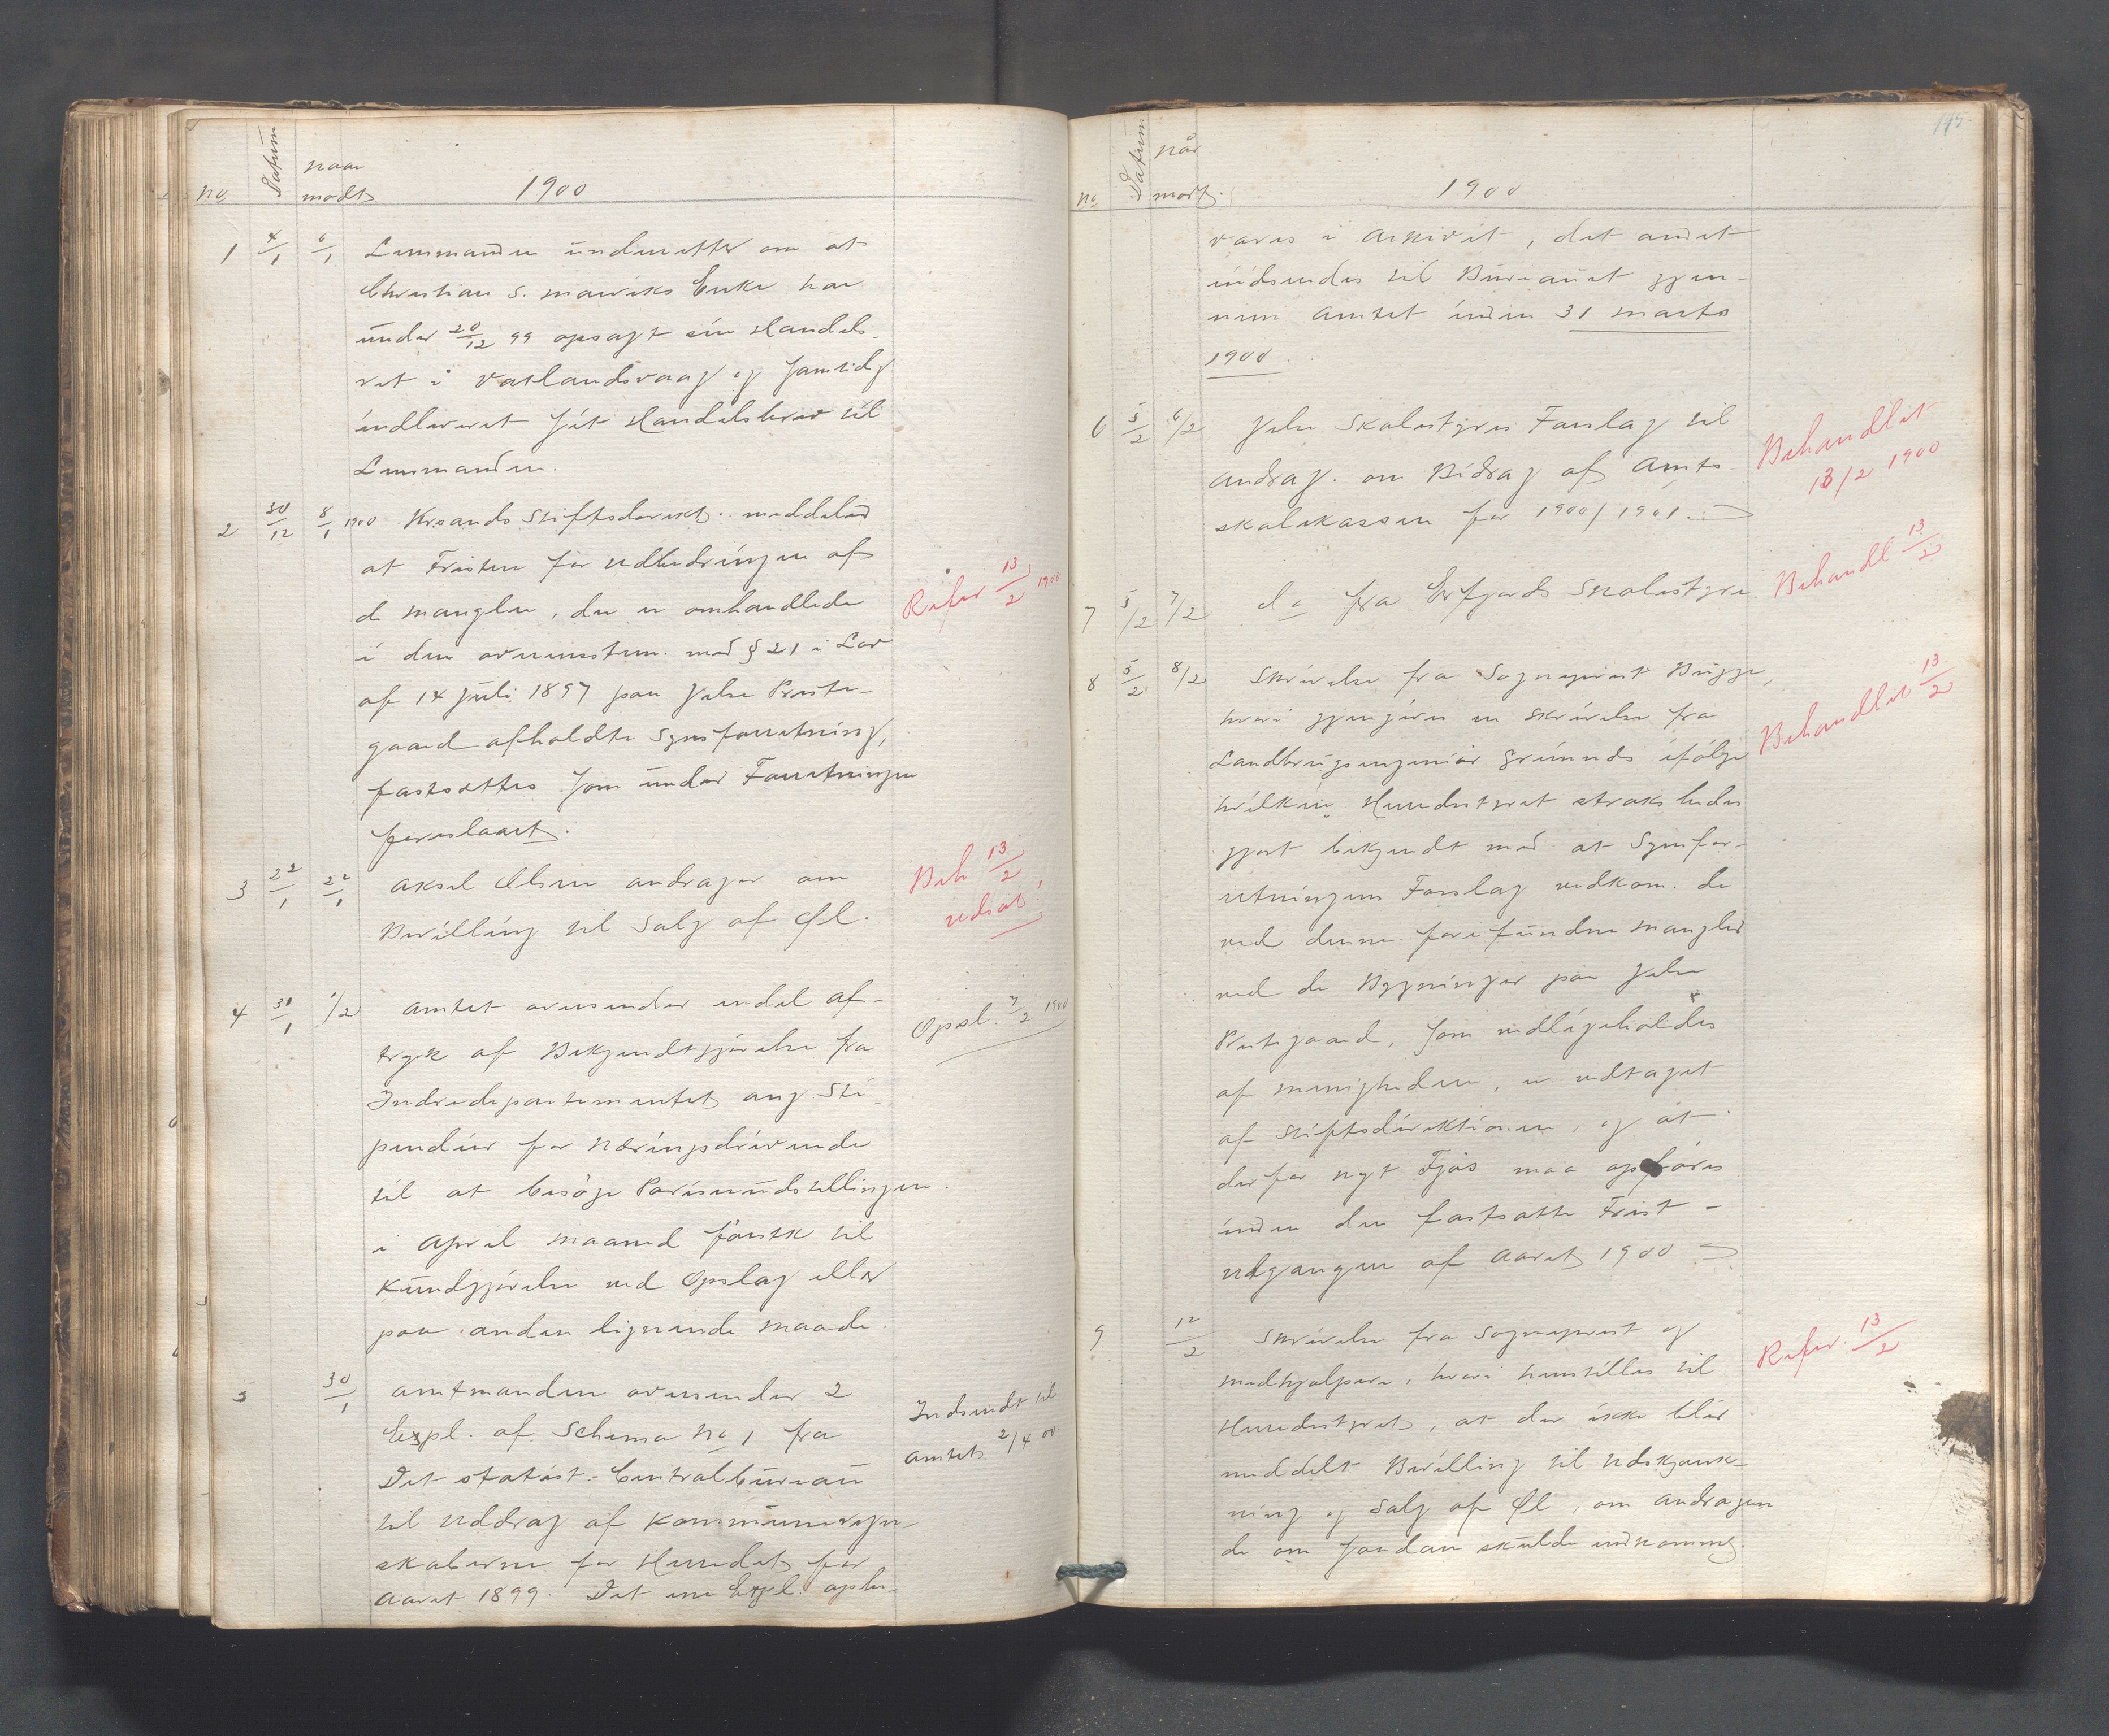 No Datum naar modt 1900
1 4/1 6/1 Lensmanden underretter om at
Christian S. Marviks Enke har
under 20/12 99 opsagt sin Handels
ret i Vatlandsvaag og samtidig
indleveret sit Handelsbrev til
Lensmanden.
2 30/12 8/1 1900 Krsands Stiftsdirekt. meddeler
at Fristen for Udbedringen af
de Mangler, der er omhandlede
i den overensstem. med § 21 i Lov
af 14 Juli 1897 paa Jelse Preste-
gaard afholdte Synsforretning,
fastsættes som under Forretningen
foreslaaet.
Refer 13/2 1900
3 22/1 22/1 Aksel Olsen andrager om
Bevilling til Salg af Øl.
Beh 13/2
udsat!
4 31/1 1/2 Amtet oversender endel af-
tryk af Bekjendtgjørelse fra
Indredepartementet ang. Sti-
pendier for Næringsdrivende
til at besøge Parisudstillingen
i April Maaned førstk til
Kundgjørelse ved Opslag eller
paa anden lignende Maade.
Opsl. 7/2 1900
5 30/1 Amtmanden oversender 2
Expl. af Schema No 1 fra
Det statist. Centralbureau
til Uddrag af Kommuneregn-
skaberne for Herredet for
Aaret 1899. Det ene Expl. opbe-
Indsendt til
Amtet 2/4 00
145.
No Datum når modt. 1900
vares i Arkivet, det andet
indsendes til Bureauet gjen-
nem Amtet inden 31 Marts
1900.
6 5/2 6/2 Jelse Skolestyres Forslag til
Andrag. om Bidrag af Amts
skolekassen for 1900/1901.
Behandlet
13/2 1900
7 5/2 7/2 do fra Erfjords Skolestyre.
Behandl 13/2
8 5/2 8/2 Skrivelse fra Sogneprest Bugge,
hvori gjengives en Skrivelse fra
Landbrugsingeniør Grimnes ifølge
hvilken Herredsstyret straks bedes
gjort bekjendt med at Synsfor-
retningens Forslag vedkom. de
ved denne forefundne Mangler
ved de Bygninger paa Jelse
Prestegaard, som vedligeholdes
af Menigheden, er vedtaget
af Stiftsdirektionen, og at
derfor nyt Fjøs maa opføres
inden den fastsatte Frist -
Udgangen af Aaret 1900
Behandlet 13/2
9 12/2 Skrivelse fra Sogneprest og
Medhjælpere, hvori henstilles til
Herredsstyret, at der ikke blir
meddelt Bevilling til Udskjænk-
ning og Salg af Øl, om Andragen
de om saadan skulde indkomme.
Refer. 13/2